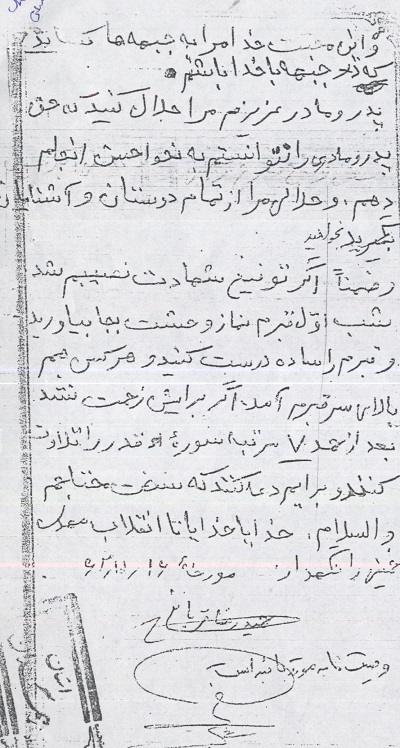 و این محبت خدا مرا به جبهه ها کشاند
که در جبهه با خدا باشم.
پدر و مادر عزیزم مرا حلال کنید که حق
پدر و مادری را نتوانستم به نحو احسن انجام
دهم، و حلالی مرا از تمام دوستان و آشنایان
بگیرید
و ضمناً اگر توفیق شهادت نصیبم شد
شب اول قبرم نماز وحشت بجا بیاورید
و قبرم را ساده درست کنید و هر کس هم
بالای سر قبرم آمد، اگر برایش زحمت نشد
بعد از حمد ۷ مرتبه سوره قدر را تلاوت
کنند و برایم دعا کنند که سخت محتاجم
والسلام. خدایا خدایا تا انقلاب مهدی
خمینی را نگهدار مورخه
وصیت نامه مورد تائید است